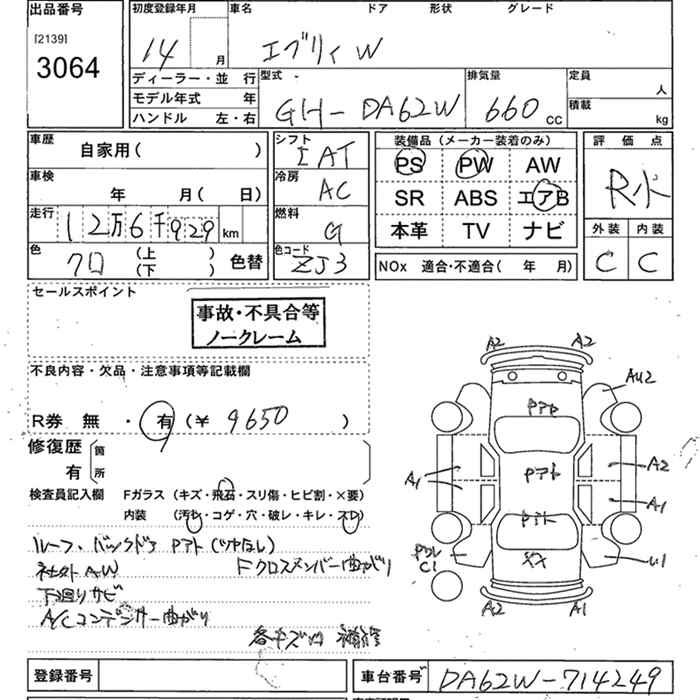 出品番号
[2139]
3064
初度登録年月 車名 ドア 形状 グレード
14 月 エブリィW
ディーラー・並 行
モデル年式 年
ハンドル 左・右
型式
GH-DA62W
排気量
660 cc
定員 人
積載 kg
車歴
自家用( )
車検
年 月( 日)
走行
12万6千929 km
色
クロ (上 下) 色替
シフト
IAT
冷房
AC
燃料
G
色コード
ZJ3
装備品 (メーカー装着のみ)
PS PW AW
SR ABS エアB
本革 TV ナビ
NOx 適合・不適合( 年 月)
評価点
R小
外装 内装
C C
セールスポイント
事故・不具合等
ノークレーム
不良内容・欠品・注意事項等記載欄
R券 無 ・ 有 (¥ 9650 )
修復歴 [箇
有 [所
検査員記入欄 Fガラス (キズ・飛石・スリ傷・ヒビ割・×要)
内装 (汚れ・コゲ・穴・破レ・キレ・スレ)
ルーフ・バックドア Pアト(ツヤなし)
社外AW Fクロスメンバー曲がり
下廻りサビ
A/Cコンデンサー曲がり
各キズ凹 補修
A2 A2
Pアト AU2
A1 Pアト A2
A1
Pアト
C1 XX U1
A2 A1
登録番号
車台番号 DA62W-714249